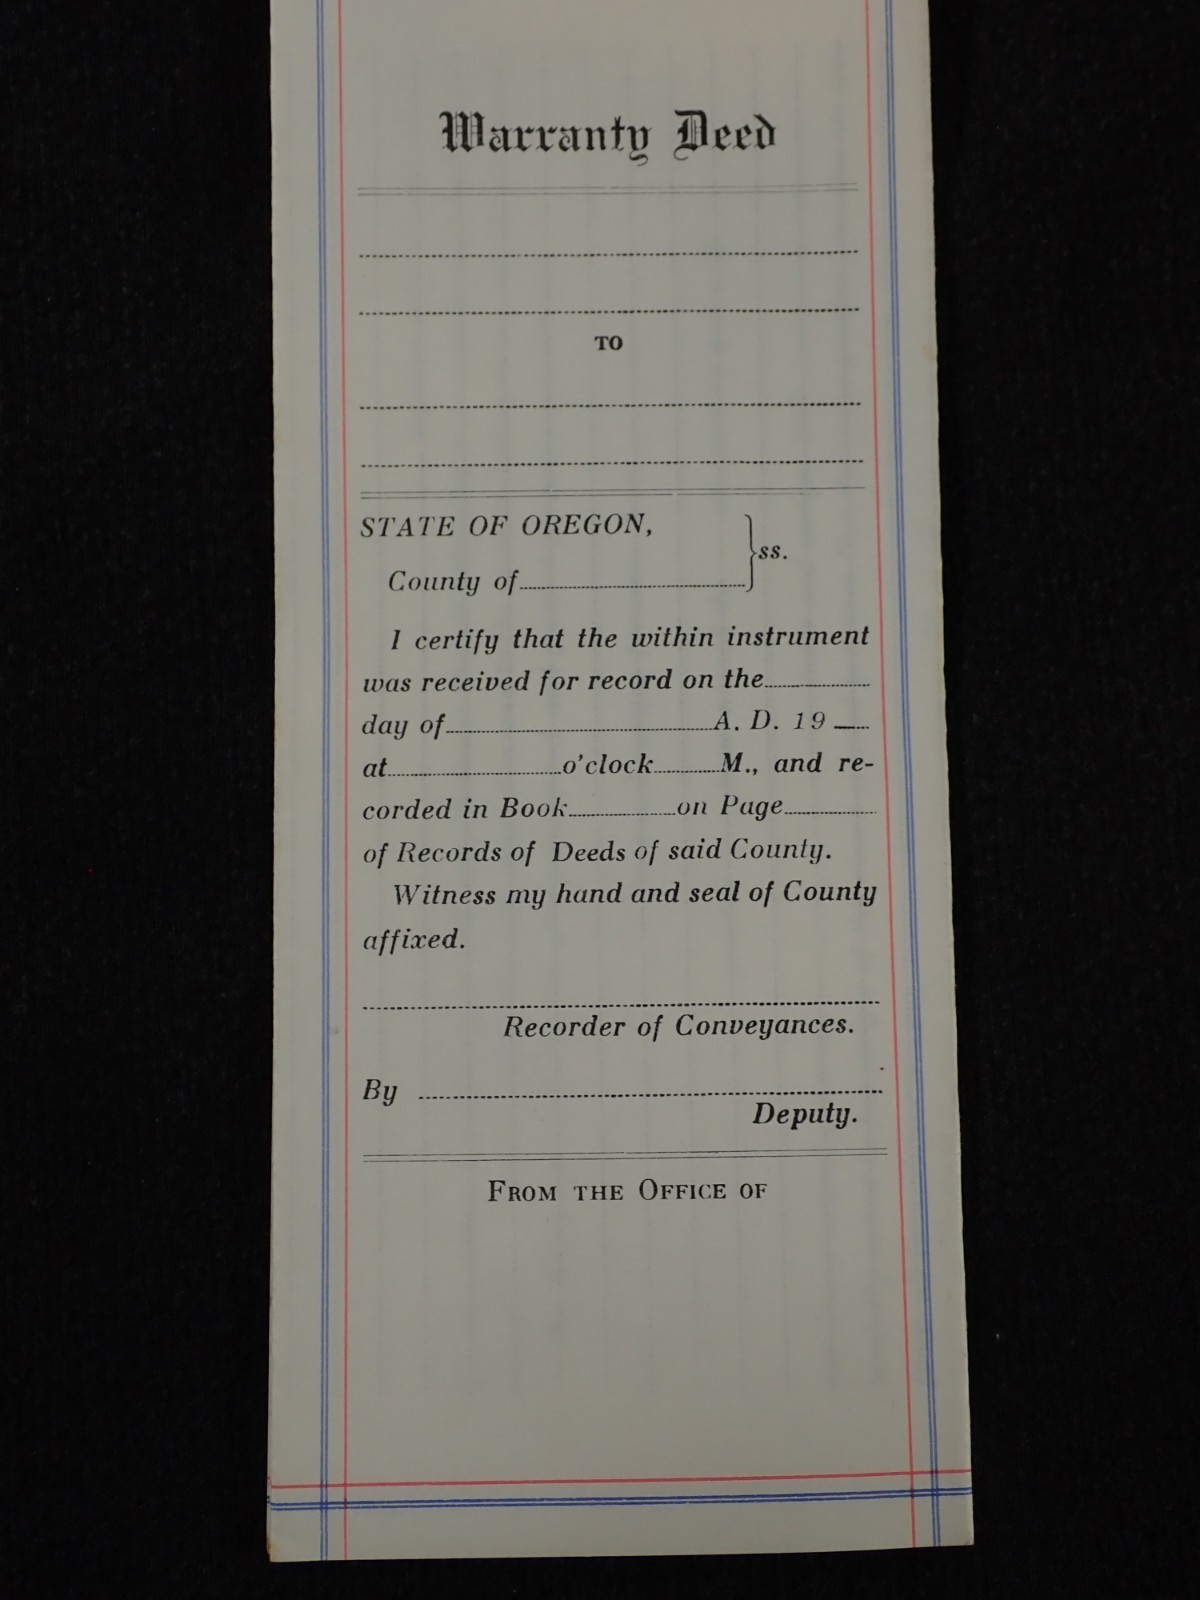 Warranty Deed
TO
STATE OF OREGON,
ss.
County of
I certify that the within instrument
was received for record on the
day of A. D. 19
at o'clock M., and re-
corded in Book on Page
of Records of Deeds of said County.
Witness my hand and seal of County
affixed.
Recorder of Conveyances.
By
Deputy.
FROM THE OFFICE OF